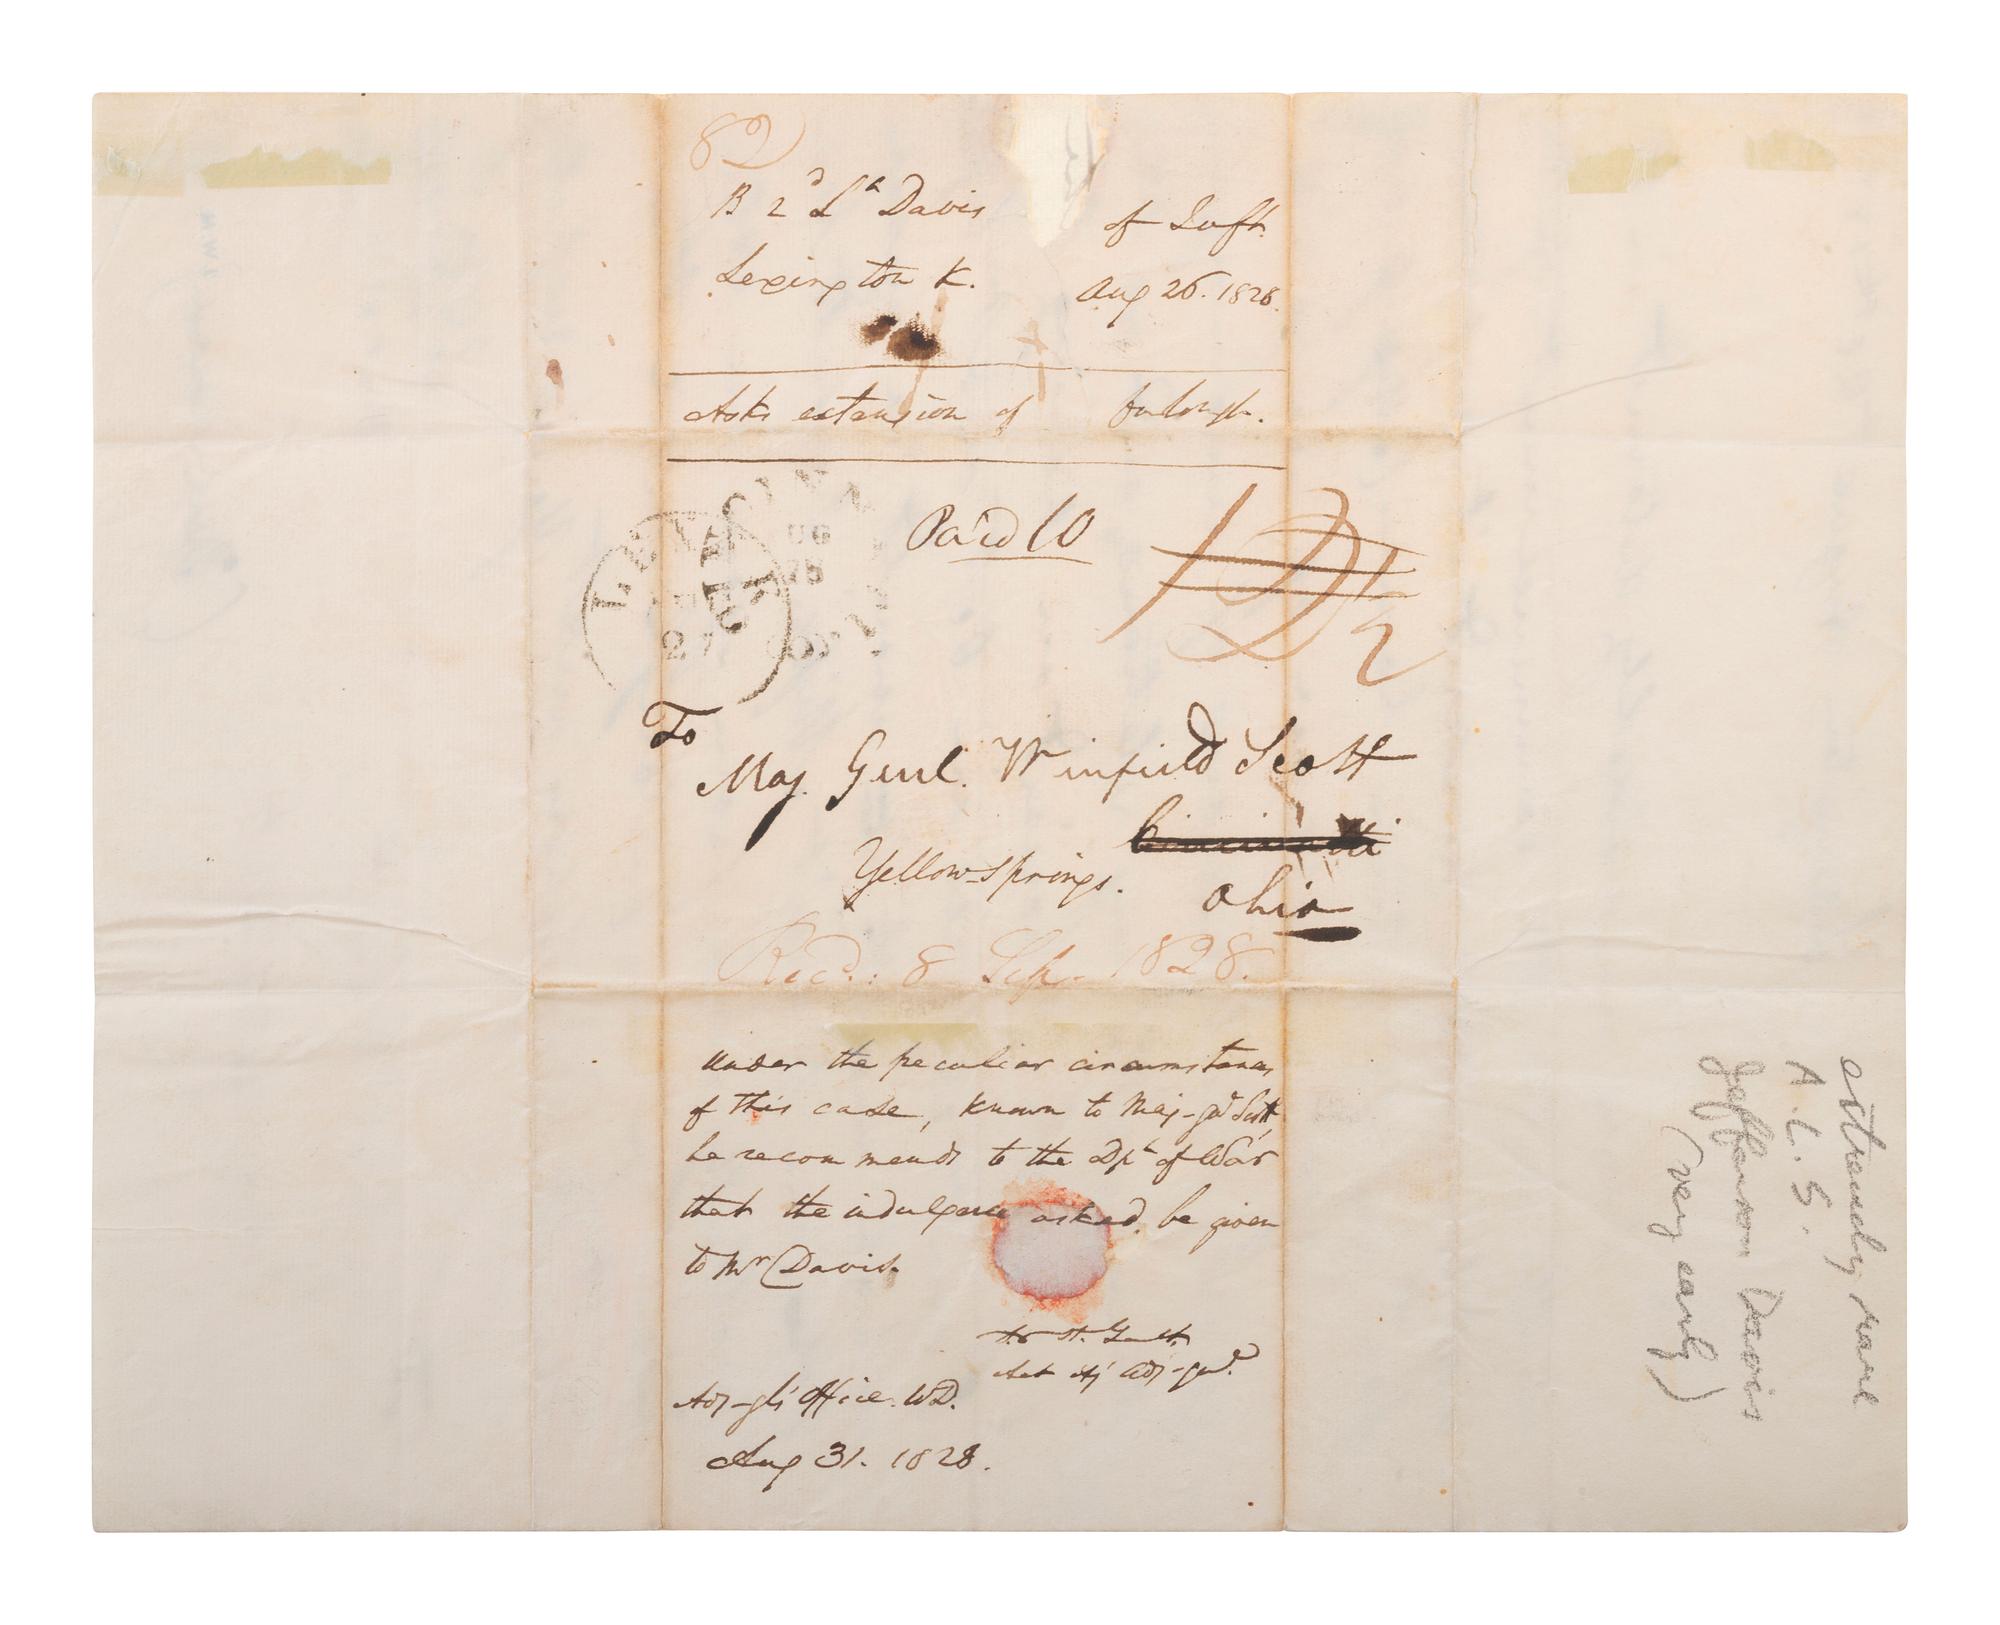 82
B 2d Lt Davis of Inft.
Lexington K. Aug 26. 1828.
Asks extension of furlough.
Paid 10
12 1/2
LEXINGTON
AUG
27
To
Maj. Genl. Winfield Scott
Cincinnatti
Yellow-Springs.
Ohio
Recd.: 8 Sep. 1828.
Under the peculiar circumstances
of this case, known to Maj-Gnl Scott,
he recommends to the Dpt of War
that the indulgence asked, be given
to Mr Davis.
Adj-gls' Office. WD.
Aug 31. 1828.
extremely rare
A.L.S.
Jefferson Davis
(very early)